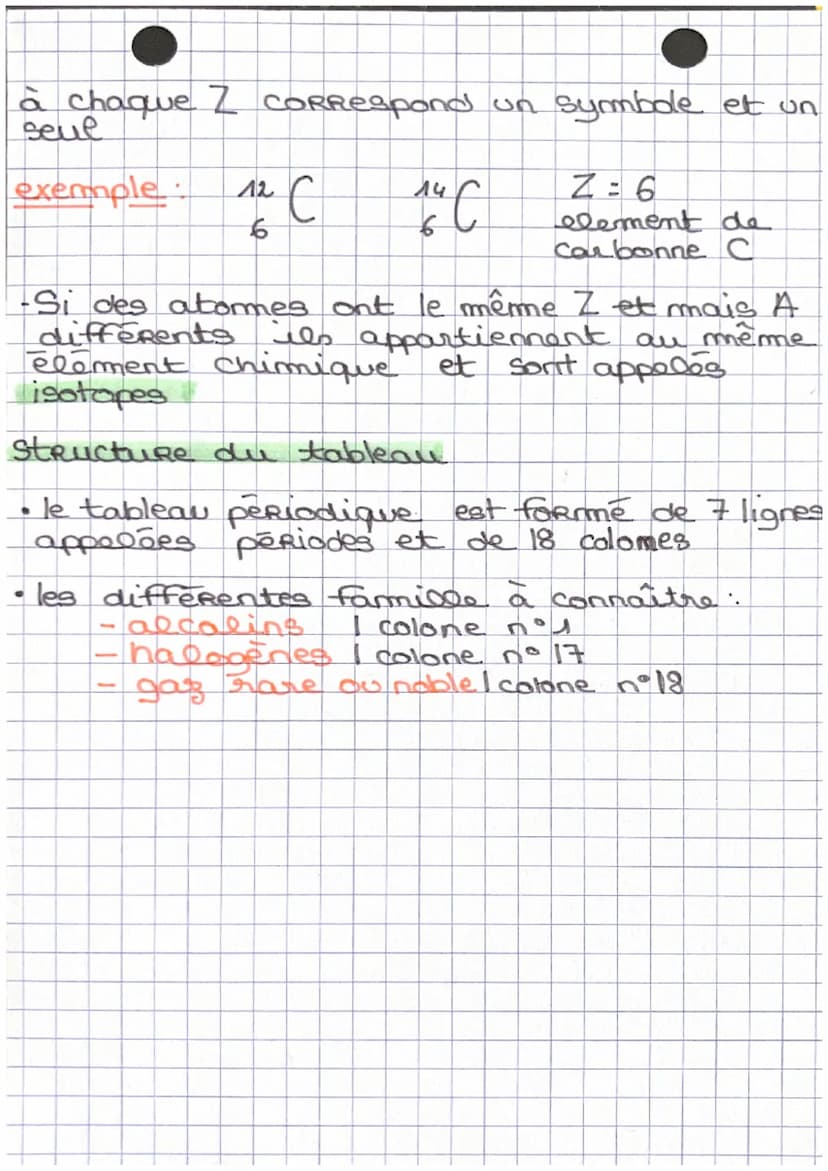 à chaque Z correspond un symbole et un
seul
exemple : ¹²₆C ¹⁴₆C Z = 6
element de
carbonne C
- Si des atomes ont le même Z et mais A
différents ils appartiennent au même
élément chimique et sont appelés
isotopes
Structure du tableau
• le tableau périodique est formé de 7 lignes
appelées périodes et de 18 colomes
• les différentes famille à connaître :
- alcalins | colone n°1
- halogènes | colone n° 17
- gaz rare ou noble | colone n°18